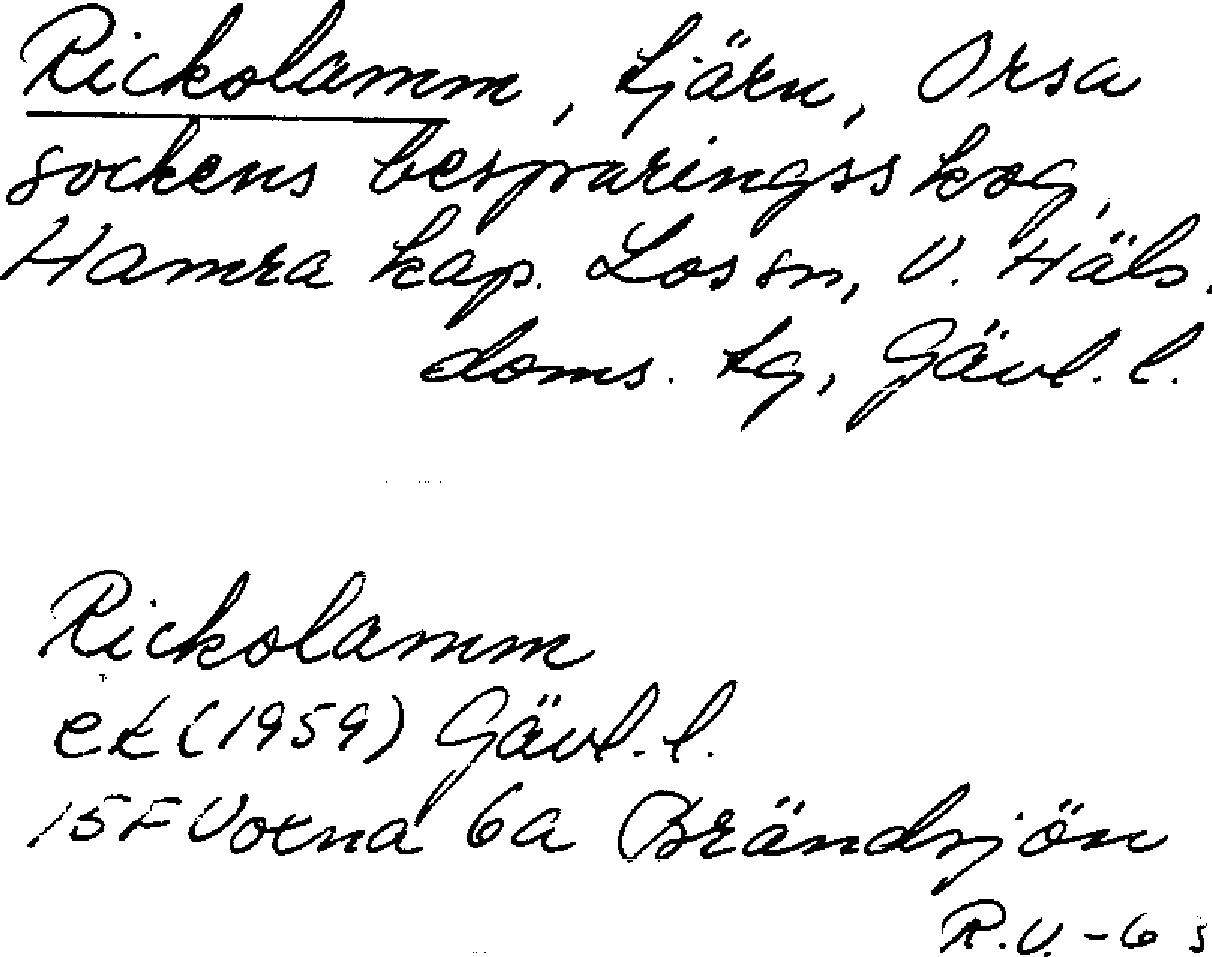 Rickolamm, tjärn, Orsa
sockens besparingsskog,
Hamra kap. Los sn, V. Häls.
doms. tg, Gävl. l.
Rickolamm
ek (1959) Gävl. l.
15F Voxna 6a Brändsjön
R.V. - 6